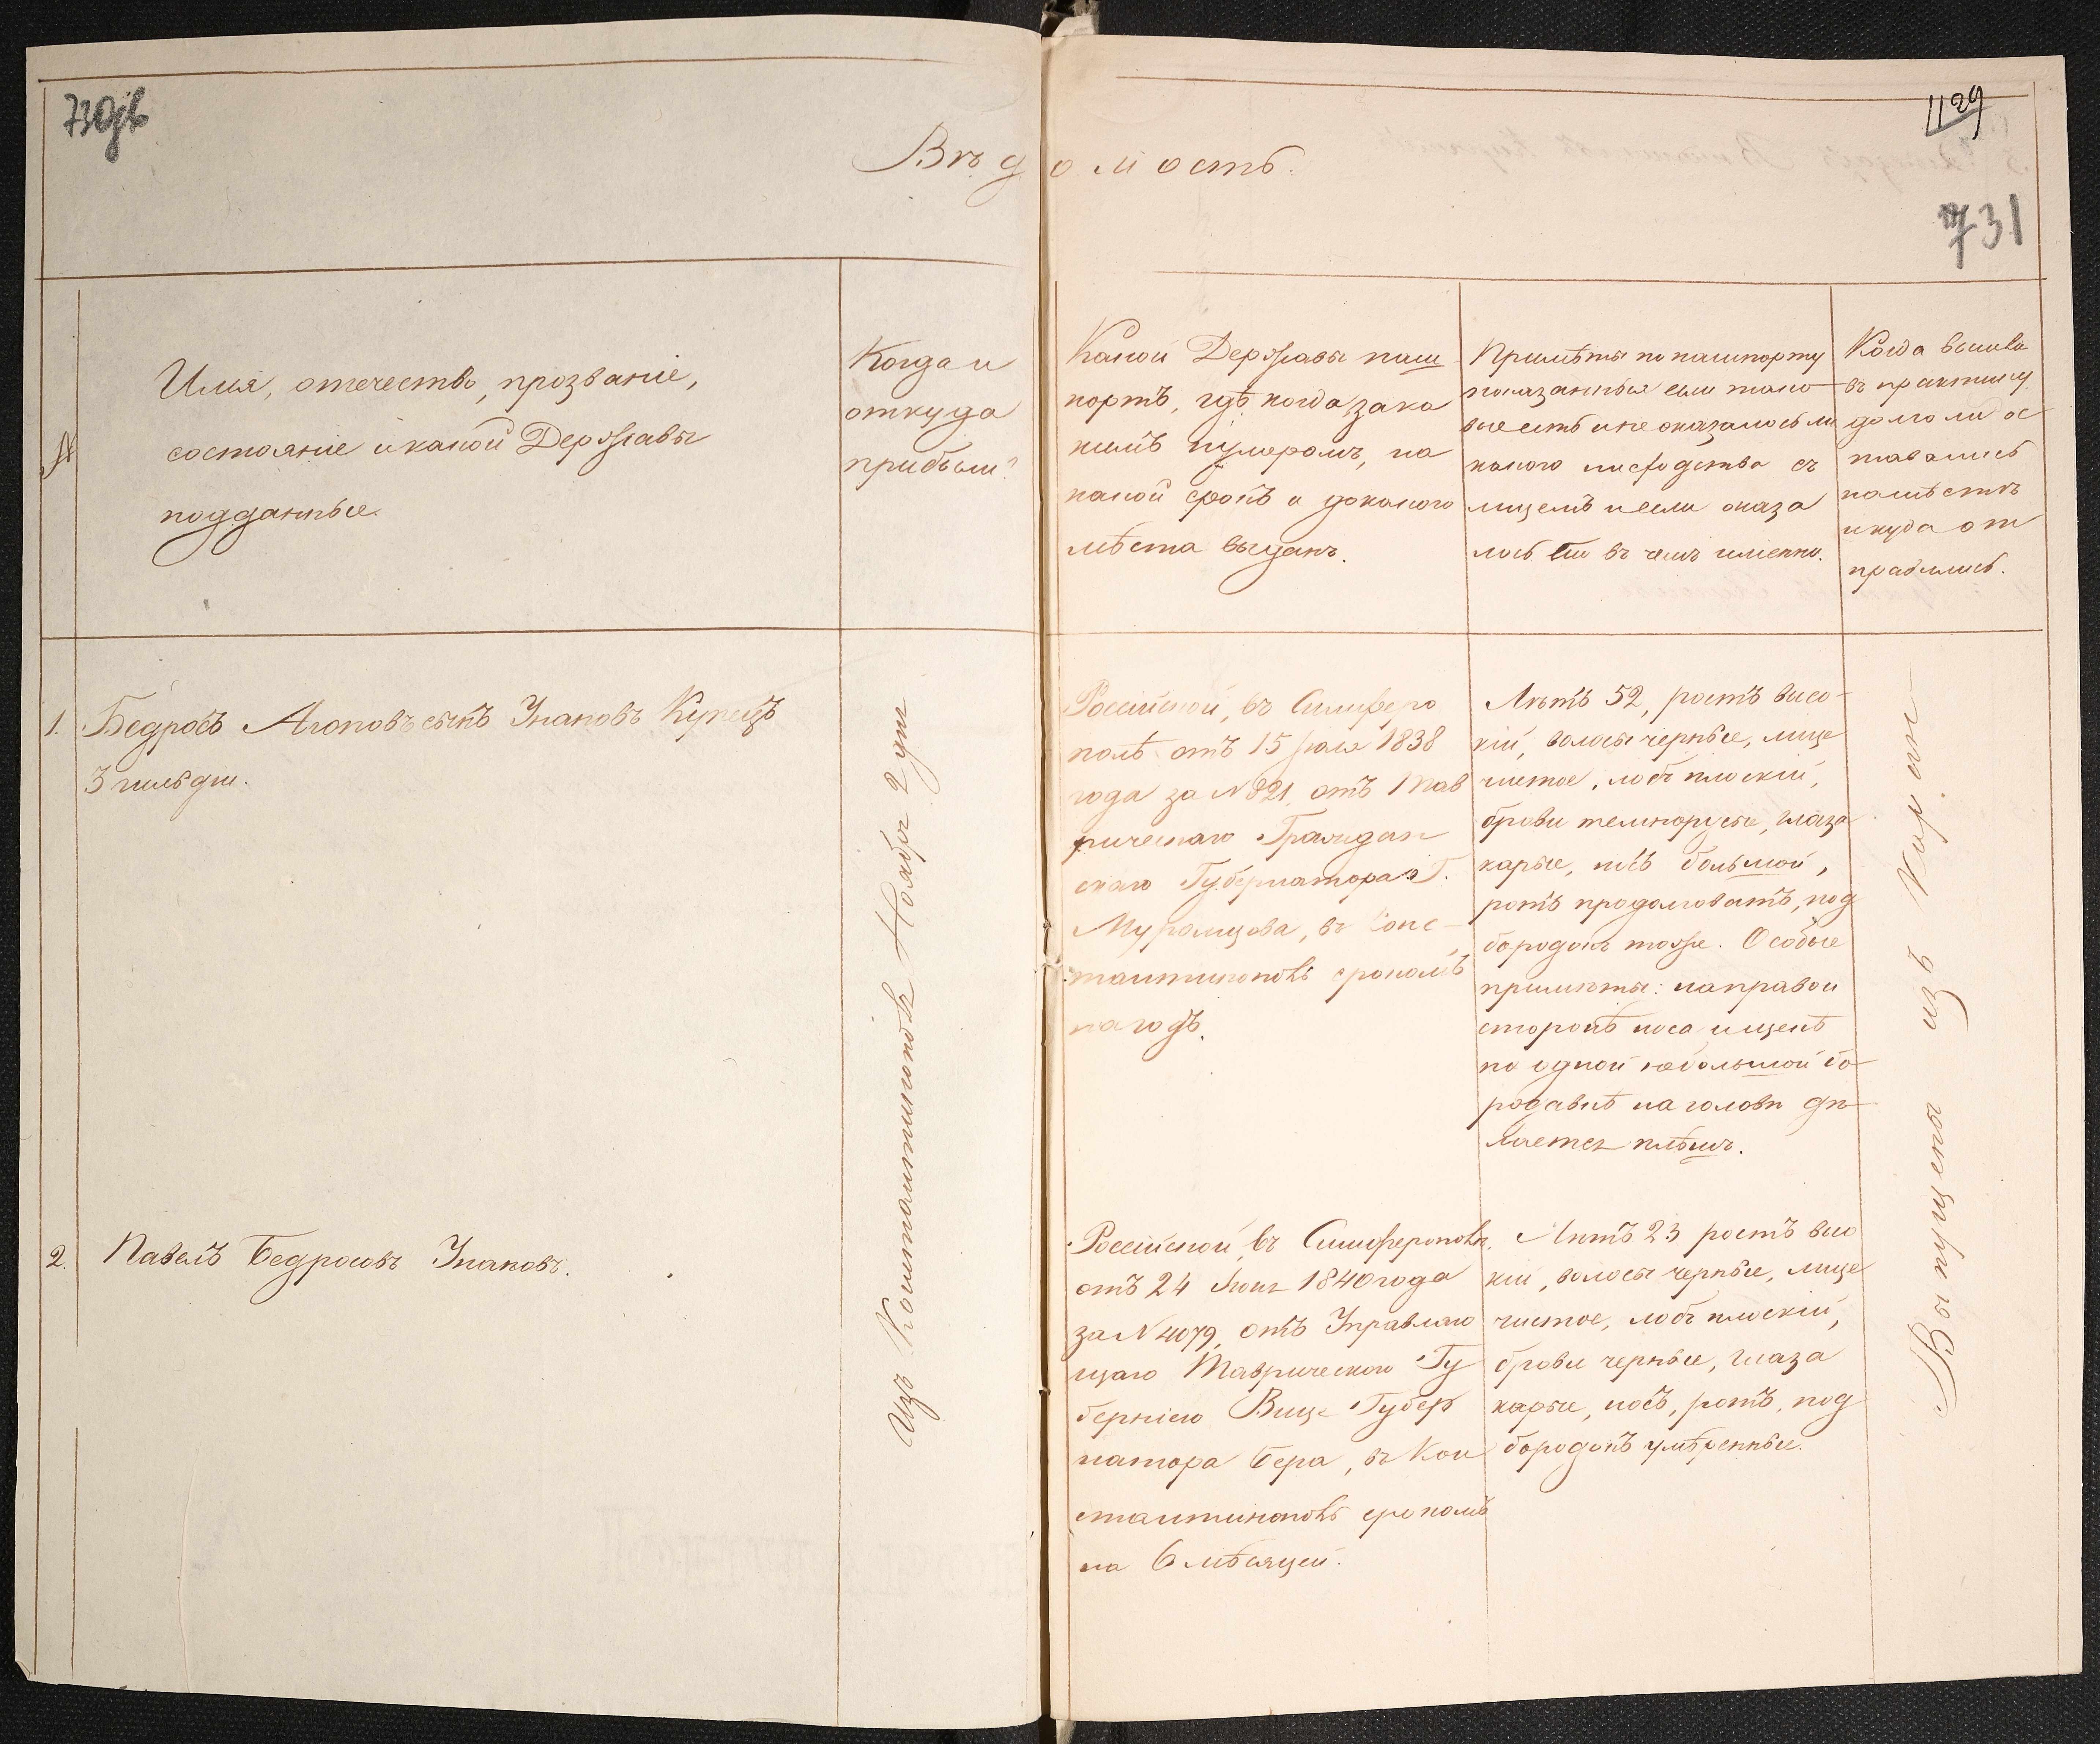 730об
1129
731
Вѣдомость.
№
Имя, отечество, прозваніе,
состояніе и какой Державы
подданные.
Когда и
откуда
прибыли?
Какой Державы паш
портъ, гдѣ когда, за ка
кимъ нумеромъ, на
какой срокъ и до какого
мѣста выданъ.
Примѣты по пашпорту
показанныя если тако
вые есть и не оказалось ли
какого несходства съ
лицемъ и если оказа
лось то въ чемъ именно.
Когда
въ практику
долго ли ос
тавались
на мѣстѣ
и куда от
правились.
1. Бедросъ Агоповъ сынъ Унановъ Купецъ
3 гильдіи.
Изъ Константинополѣ Ноября 2 дня
Россійской, въ Симферо
полѣ отъ 15 Іюля 1838
года за № 821, отъ Тав
рическаго Граждан
скаго Губернатора Г.
Муромцова, въ Конс-
тантинополь срокомъ
на годъ.
Лѣтъ 52, ростъ высо-
кій, волосы черные, лице
чистое, лобъ плоскій,
брови темнорусые, глаза
каріе, носъ большой,
ротъ продолговатъ, под
бородокъ тоже. Особые
примѣты: на правой
сторонѣ носа и щекѣ
по одной небольшой бо-
родавкѣ на головѣ дѣ-
лается плѣшь.
Выпущены изъ Кар.ан
2. Павелъ Бедросовъ Унановъ.
Россійской въ Симферополѣ
отъ 24 Іюня 1840 года
за № 4079, отъ Управляю
щаго Таврическою Гу
берніею Вице Губер
натора Бера, въ Кон
стантинополь срокомъ
на 6 мѣсяцей.
Лѣтъ 23 ростъ высо
кій, волосы черные, лице
чистое, лобъ плоскій,
брови черные, глаза
каріе, носъ, ротъ, под
бородокъ умѣренные.